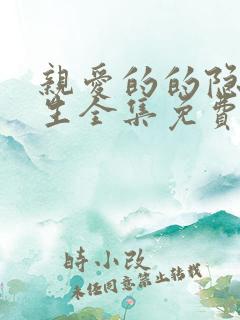 親愛的的隐
生全集免費
時小改
未经同意禁止转载